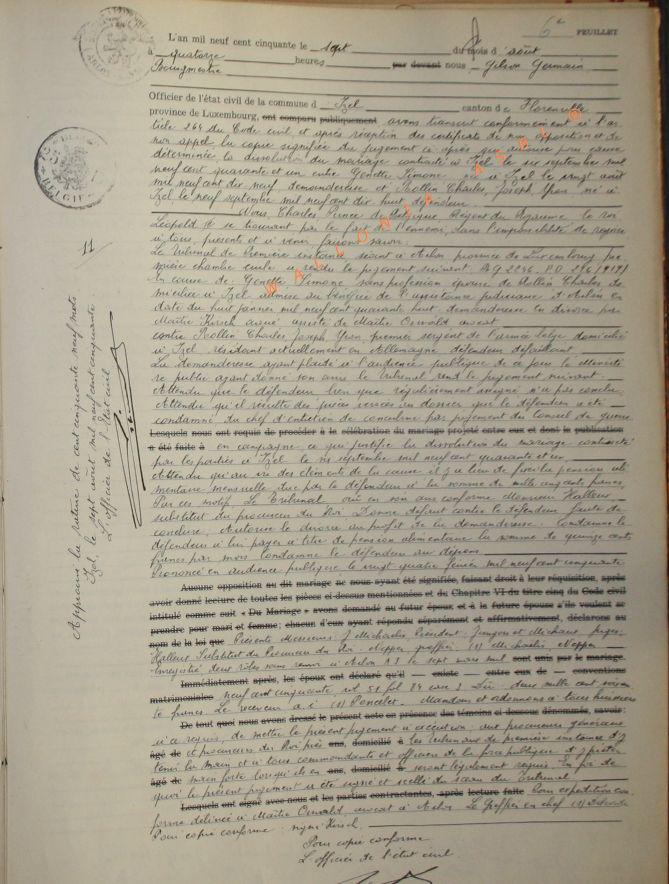 6e FEUILLET
L'an mil neuf cent cinquante le sept du mois d'août
à quatorze heures par devant nous Gilson Germain
Bourgmestre
Officier de l'état civil de la commune d Izel canton de Florenville
province de Luxembourg, ont comparu publiquement avons transcrit conformément à l'ar-
ticle 264 du Code civil et après réception des certificats de non opposition et de
non appel, la copie signifiée du jugement ci après qui autorise pour cause
déterminée la dissolution du mariage contracté à Izel le six septembre mil
neuf cent quarante et un entre Genette Simone née à Izel le vingt août
mil neuf cent dix neuf demanderesse et Rollin Charles, Joseph Yvon né à
Izel le neuf septembre mil neuf cent dix huit défendeur
Nous, Charles Prince de Belgique Régent du Royaume le roi
Léopold III se trouvant par le fait de l'ennemi, dans l'impossibilité de régner
à tous, présents et à venir faisons savoir.
Le tribunal de Première instance séant à Arlon province de Luxembourg pre-
mière chambre civile a rendu le jugement suivant
En cause de Genette Simone sans profession épouse de Rollin Charles do-
miciliée à Izel admise au bénéfice de l'assistance judiciaire à Arlon en
date du huit janvier mil neuf cent quarante huit demanderesse en divorce par
Maître Kirsch avoué assisté de Maître Oswald avocat
contre Rollin Charles Joseph Yvon premier sergent de l'armée belge domicilié
à Izel résidant actuellement en Allemagne défendeur défaillant
La demanderesse ayant plaidé à l'audience publique de ce jour le ministè-
re public ayant donné son avis le tribunal rend le jugement suivant
Attendu que le défendeur bien que régulièrement assigné n'a pas conclu
Attendu qu'il résulte des pièces versées au dossier que le défendeur a été
condamné du chef d'entretien de concubine par jugement du Conseil de guerre
Lesquels nous ont requis de procéder à la célébration du mariage projeté entre eux et dont la publication
a été faite à en campagne ce qui justifie la dissolution du mariage contracté
par les parties à Izel le six septembre mil neuf cent quarante et un
Attendu qu'au vu des éléments de la cause il y a lieu de fixer la pension ali-
mentaire mensuelle due par le défendeur à la somme de mille cinq cents francs
Par ces motifs Le Tribunal ouï en son avis conforme Monsieur Halleux
substitut du procureur du Roi Donne défaut contre le défendeur faute de
conclure, Autorise le divorce au profit de la demanderesse. Condamne le
défendeur à lui payer à titre de pension alimentaire la somme de quinze cents
francs par mois Condamne le défendeur aux dépens
Prononcé en audience publique le vingt quatre février mil neuf cent cinquante
Aucune opposition au dit mariage ne nous ayant été signifiée, faisant droit à leur réquisition, après
avoir donné lecture de toutes les pièces ci-dessus mentionnées et du Chapitre VI du titre cinq du Code civil
intitulé comme suit « Du Mariage » avons demandé au futur époux et à la future épouse s'ils veulent se
prendre pour mari et femme; chacun d'eux ayant répondu séparément et affirmativement, déclarons au
nom de la loi que Présents Messieurs : J Michaëlis Président : et Michaux juges
Halleux Substitut du Procureur du Roi. greffier. (s) Michaëlis
Enregistré deux rôles sans renvoi à Arlon A.J. le sept mars mil sont unis par le mariage.
Immédiatement après, les époux ont déclaré qu'il existe entre eux de conventions
matrimoniales neuf cent cinquante vol 51 fol 34 case 3 deux mille cent
francs. Le receveur a.i (s) Poncelet. Mandons et ordonnons à tous huissiers
De tout quoi nous avons dressé le présent acte en présence des témoins ci dessous dénommés, savoir:
à ce requis, de mettre le présent jugement à exécution; aux procureurs généraux
âgé de et procureurs du Roi près ans, domicilié à les tribunaux de première instance d'y
tenir la main et à tous commandants et officiers de la force publique d'y prêter
âgé de main forte lorsqu'ils en ans, domicilié à seront légalement requis En foi de
quoi le présent jugement a été signé et scellé du sceau du Tribunal.
Lesquels ont signé avec nous et les parties contractantes, après lecture faite Pour expédition con-
forme délivrée à Maître Oswald, avocat à Arlon Le Greffier en chef (s)
Pour copie conforme : signé Kirsch.
Pour copie conforme
L'officier de l'état civil
11
Approuvé la rature de cent cinquante neuf mots
Izel, le sept août mil neuf cent cinquante
L'officier de l'état civil
BELGIEN
WALLONIA ASBL ©